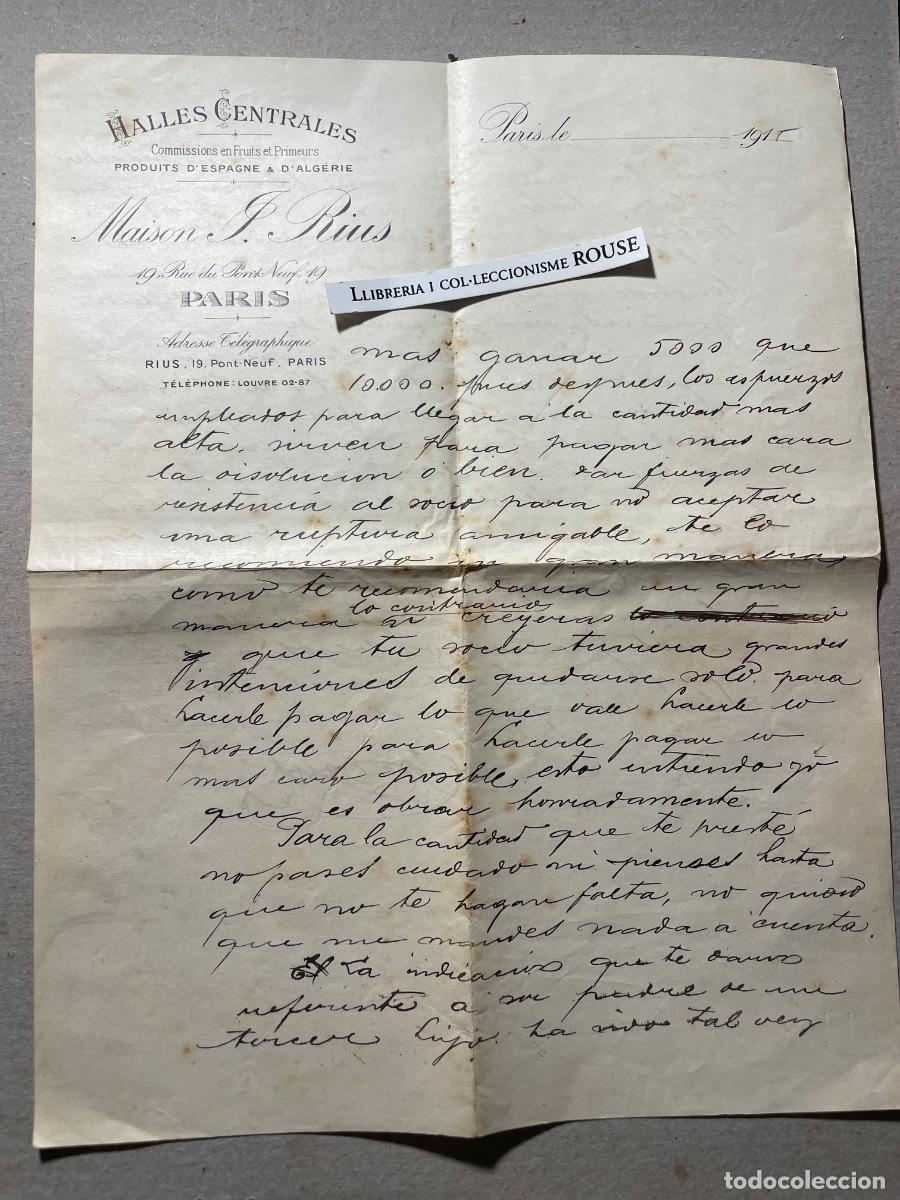 HALLES CENTRALES
Commissions en Fruits et Primeurs
PRODUITS D'ESPAGNE & D'ALGÉRIE
Maison J. Rius
19, Rue du Pont-Neuf, 19
PARIS
Adresse Télégraphique
RIUS, 19, Pont-Neuf, PARIS
TÉLÉPHONE: LOUVRE 02-87
Paris, le 191
LLIBRERIA I COL·LECCIONISME ROUSE
mas ganar 5000 que
10.000. pues despues, los espuerzos
empleados para llegar a la cantidad mas
alta. sirven para pagar mas cara
la disolucion o bien. dar fuerzas de
resistencia al socio para no aceptar
una ruptura amigable, te lo
recomiendo en gran manera,
como te recomendaria en gran
manera si creyeras lo contrario
que tu socio tuviera grandes
intenciones de quedarse solo. para
hacerle pagar lo que vale hacerle lo
posible para hacerle pagar lo
mas caro posible, esto entiendo yo
que es obrar honradamente.
Para la cantidad que te presté
no pases cuidado ni pienses hasta
que no te hagan falta, no quiero
que me mandes nada a cuenta.
La indicacion que te damos
referente a ser padre de un
tercer hijo. ha sido tal vez
todocoleccion